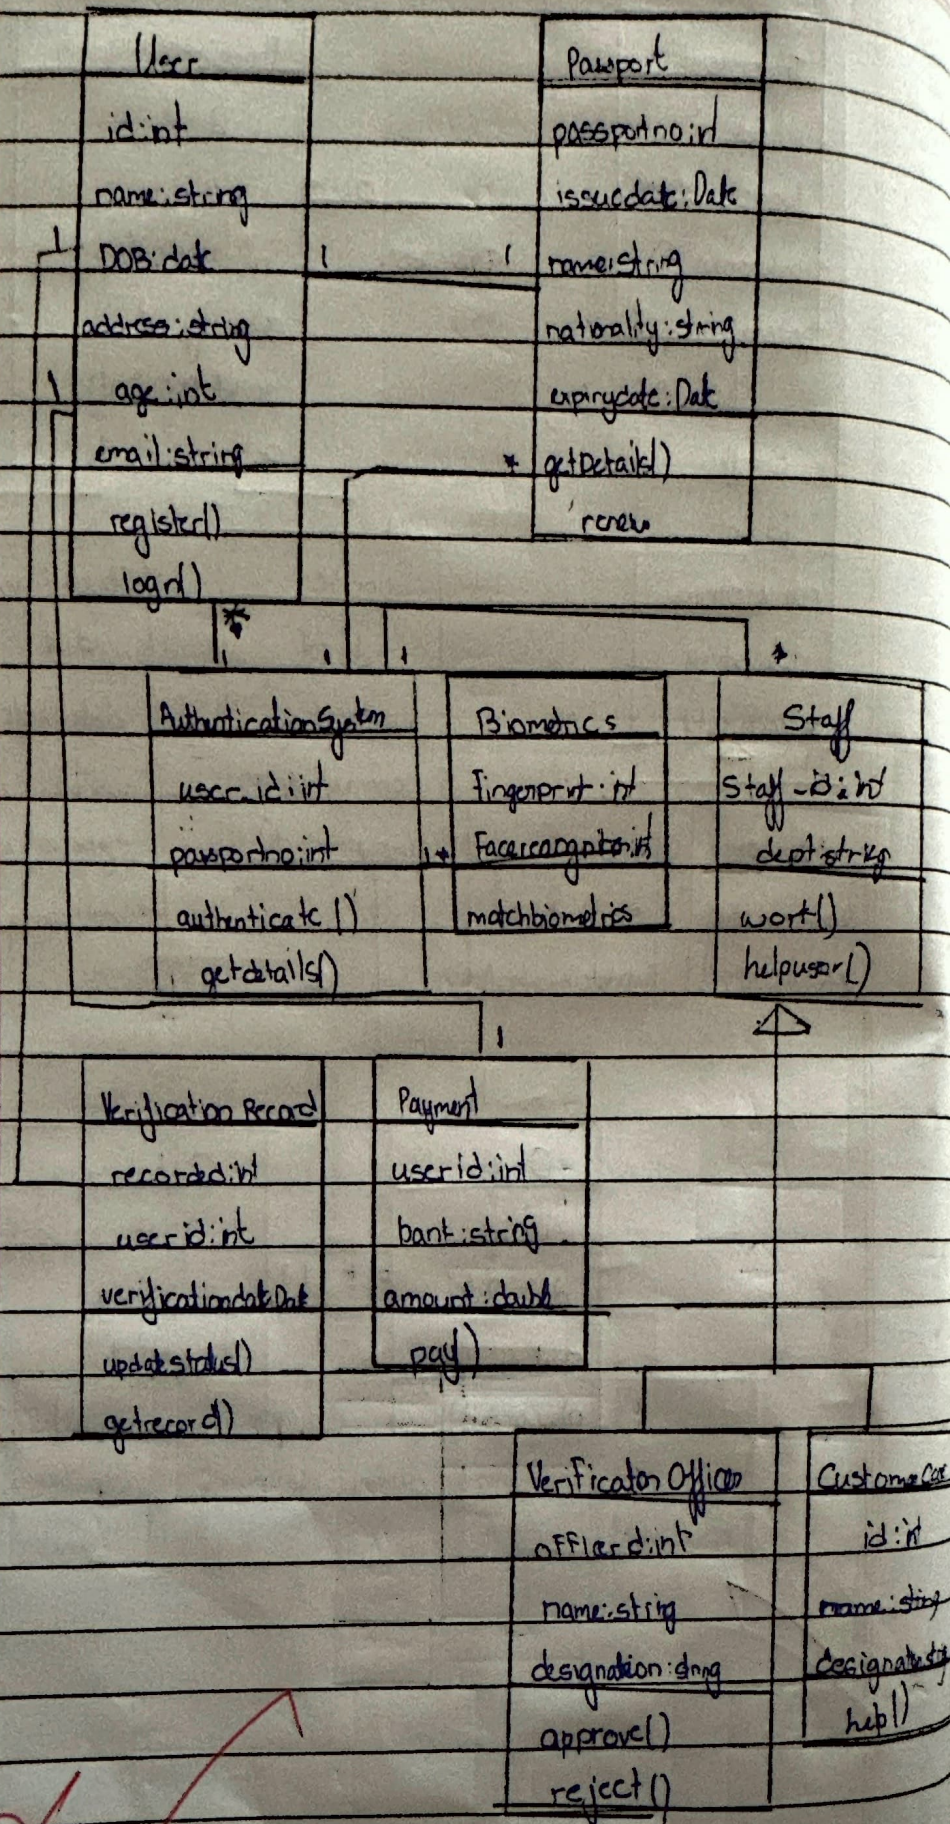 User
id:int
name:string
DOB:date
address:string
age:int
email:string
register()
login()
Passport
passportno:int
issuedate:Date
name:string
nationality:string
expirydate:Date
getDetails()
renew
1
1
1
1
*
*
1
1
1
*
AuthenticationSystem
user_id:int
passportno:int
authenticate()
getdetails()
1 *
Biometrics
fingerprint:int
matchbiometrics
Staff
Staff_id:int
dept:string
work()
helpuser()
1
Verification Record
recorded:int
userid:int
verificationdate:Date
updatestatus()
getrecord()
Payment
userid:int
bank:string
amount:double
pay()
Verification Officer
name:string
designation:string
approve()
reject()
id:int
name:string
help()